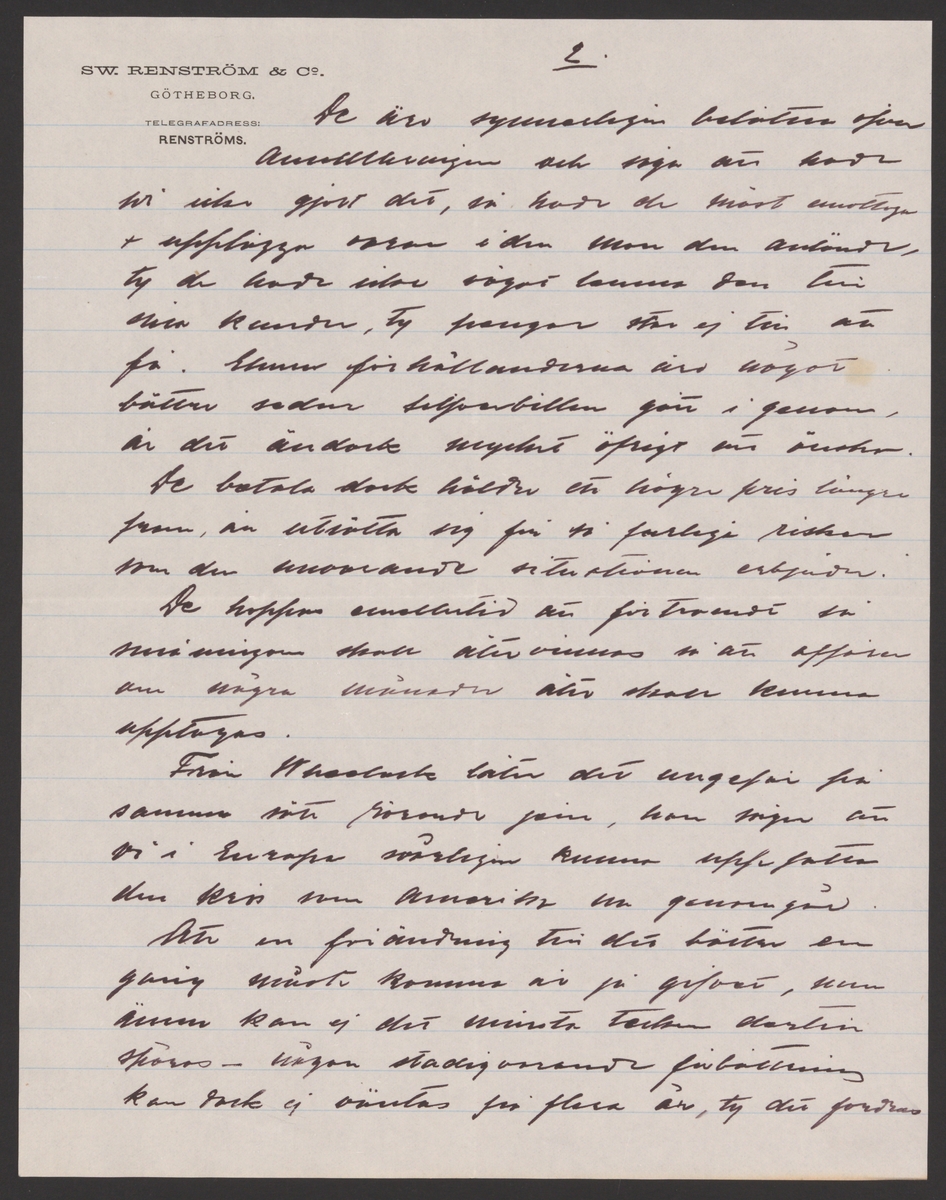 2.
SW. RENSTRÖM & Cº.
GÖTHEBORG.
TELEGRAFADRESS:
RENSTRÖMS.
De äro synnerligen belåtna öfver
Annulleringen och säga att hade
vi icke gjort det, så hade de måst emottaga
+ upplägga varan i den mon den anlände,
ty de hade icke vågat lemna den till
sina kunder, ty pengar står ej till att
få. Ehuru förhållanderna äro något
bättre sedan silfverbillen gått i genom,
är det ändock mycket öfrigt att önska.
De betala dock häldre ett högre pris längre
fram, än utsätta sig för så farliga risker
som den nuvarande situationen erbjuder.
De hoppas emellertid att förtroendet så
småningom skall återvinnas så att affärer
om några månader åter skall kunna
upptagas.
Från Wheelock låter det ungefär på
samma sätt rörande jern, han säger att
vi i Europa svårligen kunna uppfatta
den kris som Amerika nu genomgår.
Att en förändring till det bättre en
gång måste komma är ju gifvet, men
ännu kan ej det minsta tecken dertill
spåras – någon stadigvarande förbättring
kan dock ej väntas på flera år, ty det fordras